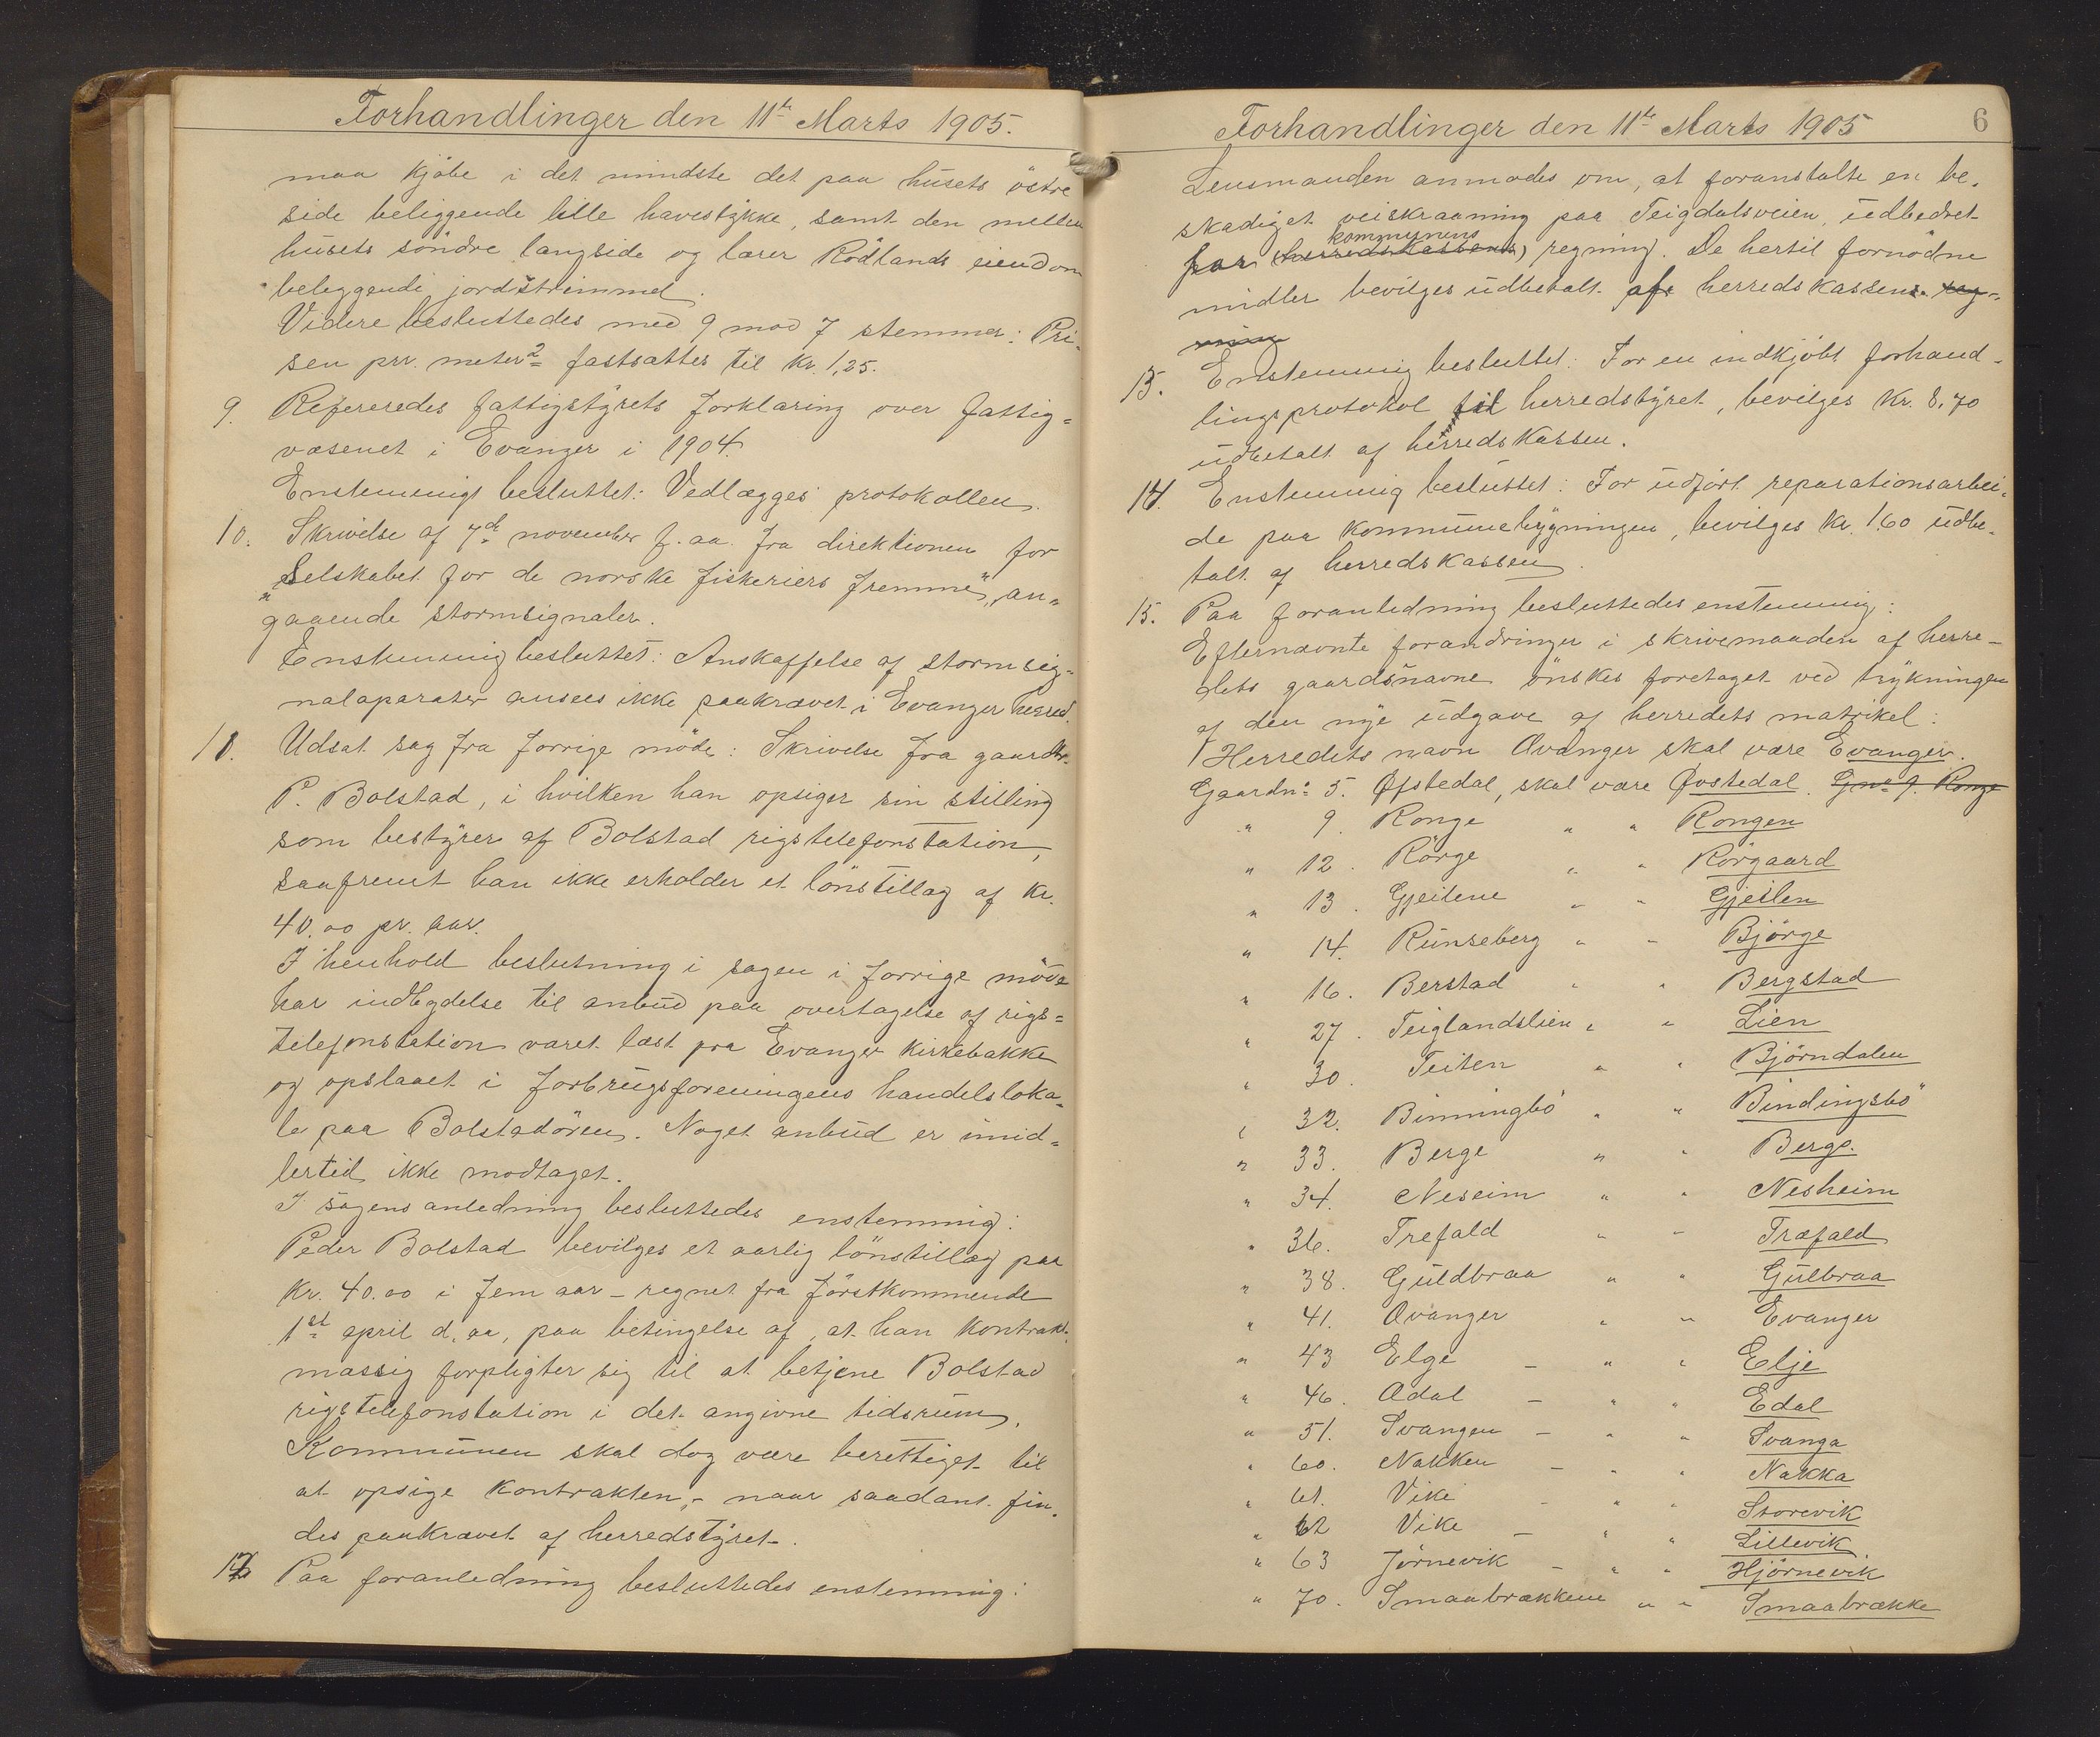 Forhandlinger den 11te Marts 1905.
maa kjöbe i det mindste det paa husets östre
side beliggende lille havestykke, samt den mellem
husets söndre langside og lærer Rödlands eiendom
beliggende jordstrimmel.
Videre besluttedes med 9 mod 7 stemmer: Pri-
sen pr. meter2 fastsættes til Kr. 1,25.
9. Refereredes fattigstyrets forklaring over fattig-
væsenet i Evanger i 1904.
Enstemmigt besluttet: Vedlægges protokollen.
10. Skrivelse af 7de november f. aa. fra direktionen for
"Selskabet for de norske fiskeriers fremme", an-
gaaende stormsignaler.
Enstemmig besluttet: Anskaffelse af stormsig-
nalaparater ansees ikke paakrævet i Evanger herred.
11. Udsat sag fra forrige möde: Skrivelse fra gaardbr.
P. Bolstad, i hvilken han opsiger sin stilling
som bestyrer af Bolstad rigstelefonstation,
saafremt han ikke erholder et lönstillæg af Kr.
40.00 pr. aar.
I henhold beslutning i sagen i forrige möde
har indbydelse til anbud paa overtagelse af rigs-
telefonstation været læst fra Evanger Kirkebakke
og opslaaet i forbrugsforeningens handelsloka-
le paa Bolstadören. Noget anbud er imid-
lertid ikke modtaget.
I sagens anledning besluttedes enstemmig:
Peder Bolstad bevilges et aarlig lönstillæg paa
Kr. 40.00 i fem aar – regnet fra förstkommende
1st april d. aa, paa betingelse af, at han kontrakt-
mæssig forpligter sig til at betjene Bolstad
rigstelefonstation i det angivne tidsrum.
Kommunen skal dog være berettiget til
at opsige kontrakten, – naar saadant fin-
des paakrævet af herredstyret.
12 Paa foranledning besluttedes enstemmig:
Forhandlinger den 11te Marts 1905
6
Lensmanden anmodes om, at foranstalte en be-
skadiget veiskraaning paa Teigdalsveien, udbedret
kommunens
for (herredskassens) regning. De hertil fornödne
midler bevilges udbetalt af herredskassens reg-
ning
13. Enstemmig besluttet: For en indkjöbt forhand-
lingsprotokol til herredstyret, bevilges Kr. 8,70
udbetalt af herredskassen.
14. Enstemmig besluttet: For udfört reparationsarbei-
de paa kommunebygningen, bevilges Kr. 1.60 udbe-
talt af herredskassen.
15. Paa foranledning besluttedes enstemmig:
Efternævnte forandringer i skrivemaaden af herre-
dets gaardsnavne önskes foretaget ved trykningen
af den nye udgave af herredets matrikel:
Herredets navn Ovanger skal være Evanger.
Gaardn: 5. Øfstedal, skal være Øvstedal. Gno 9. Ronge
" 9. Ronge " " Rongen
" 12. Rörge " " Rörgaard
" 13. Gjeilene " " Gjeilen
" 14. Runseberg " " Björge
" 16. Berstad " " Bergstad
" 27. Teiglandslien " " Lien
" 30. Teiten " " Björndalen
" 32. Binningbö " " Bindingsbö
" 33. Berge " " Berge.
" 34. Neseim " " Nesheim
" 36. Trefald " " Træfald
" 38. Guldbraa " " Gulbraa
" 41. Ovanger " " Evanger
" 43 Elge – " " Elje
" 46. Odal – " " Edal
" 51. Svangen – " " Svanga
" 60. Nakken – " " Nakka
" 61. Vike – " " Storevik
" 62 Vike – " " Lillevik
" 63 Jörnevik – " " Hjörnevik
" 70. Smaabrækkene " " Smaabrække